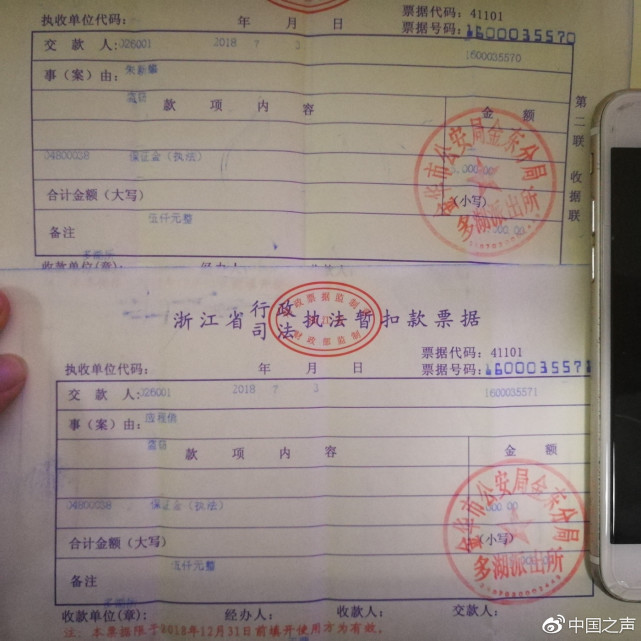 执收单位代码： 年 月 日 票据代码：41101
票据号码：1600035570
交款人：026001 2018 7 3 1600035570
事（案）由：
款项内容 金额
04800038 保证金（执法） 5,000.00
合计金额（大写） （小写）
伍仟元整
备注
收款单位(章)： 经办人： 收款人：
第二联 收据联
金华市公安局金东分局
多湖派出所
浙江省行政司法执法暂扣款票据
执收单位代码： 年 月 日 票据代码：41101
票据号码：1600035571
交款人：026001 2018 7 3 1600035571
事（案）由：
款项内容 金额
04800038 保证金（执法） 000.00
合计金额（大写） （小写）
伍仟元整
备注
金华市公安局金东分局
多湖派出所
收款单位(章)： 经办人： 收款人： 交款人：
注：本票据限于2018年12月31日前填开使用方为有效。
@中国之声